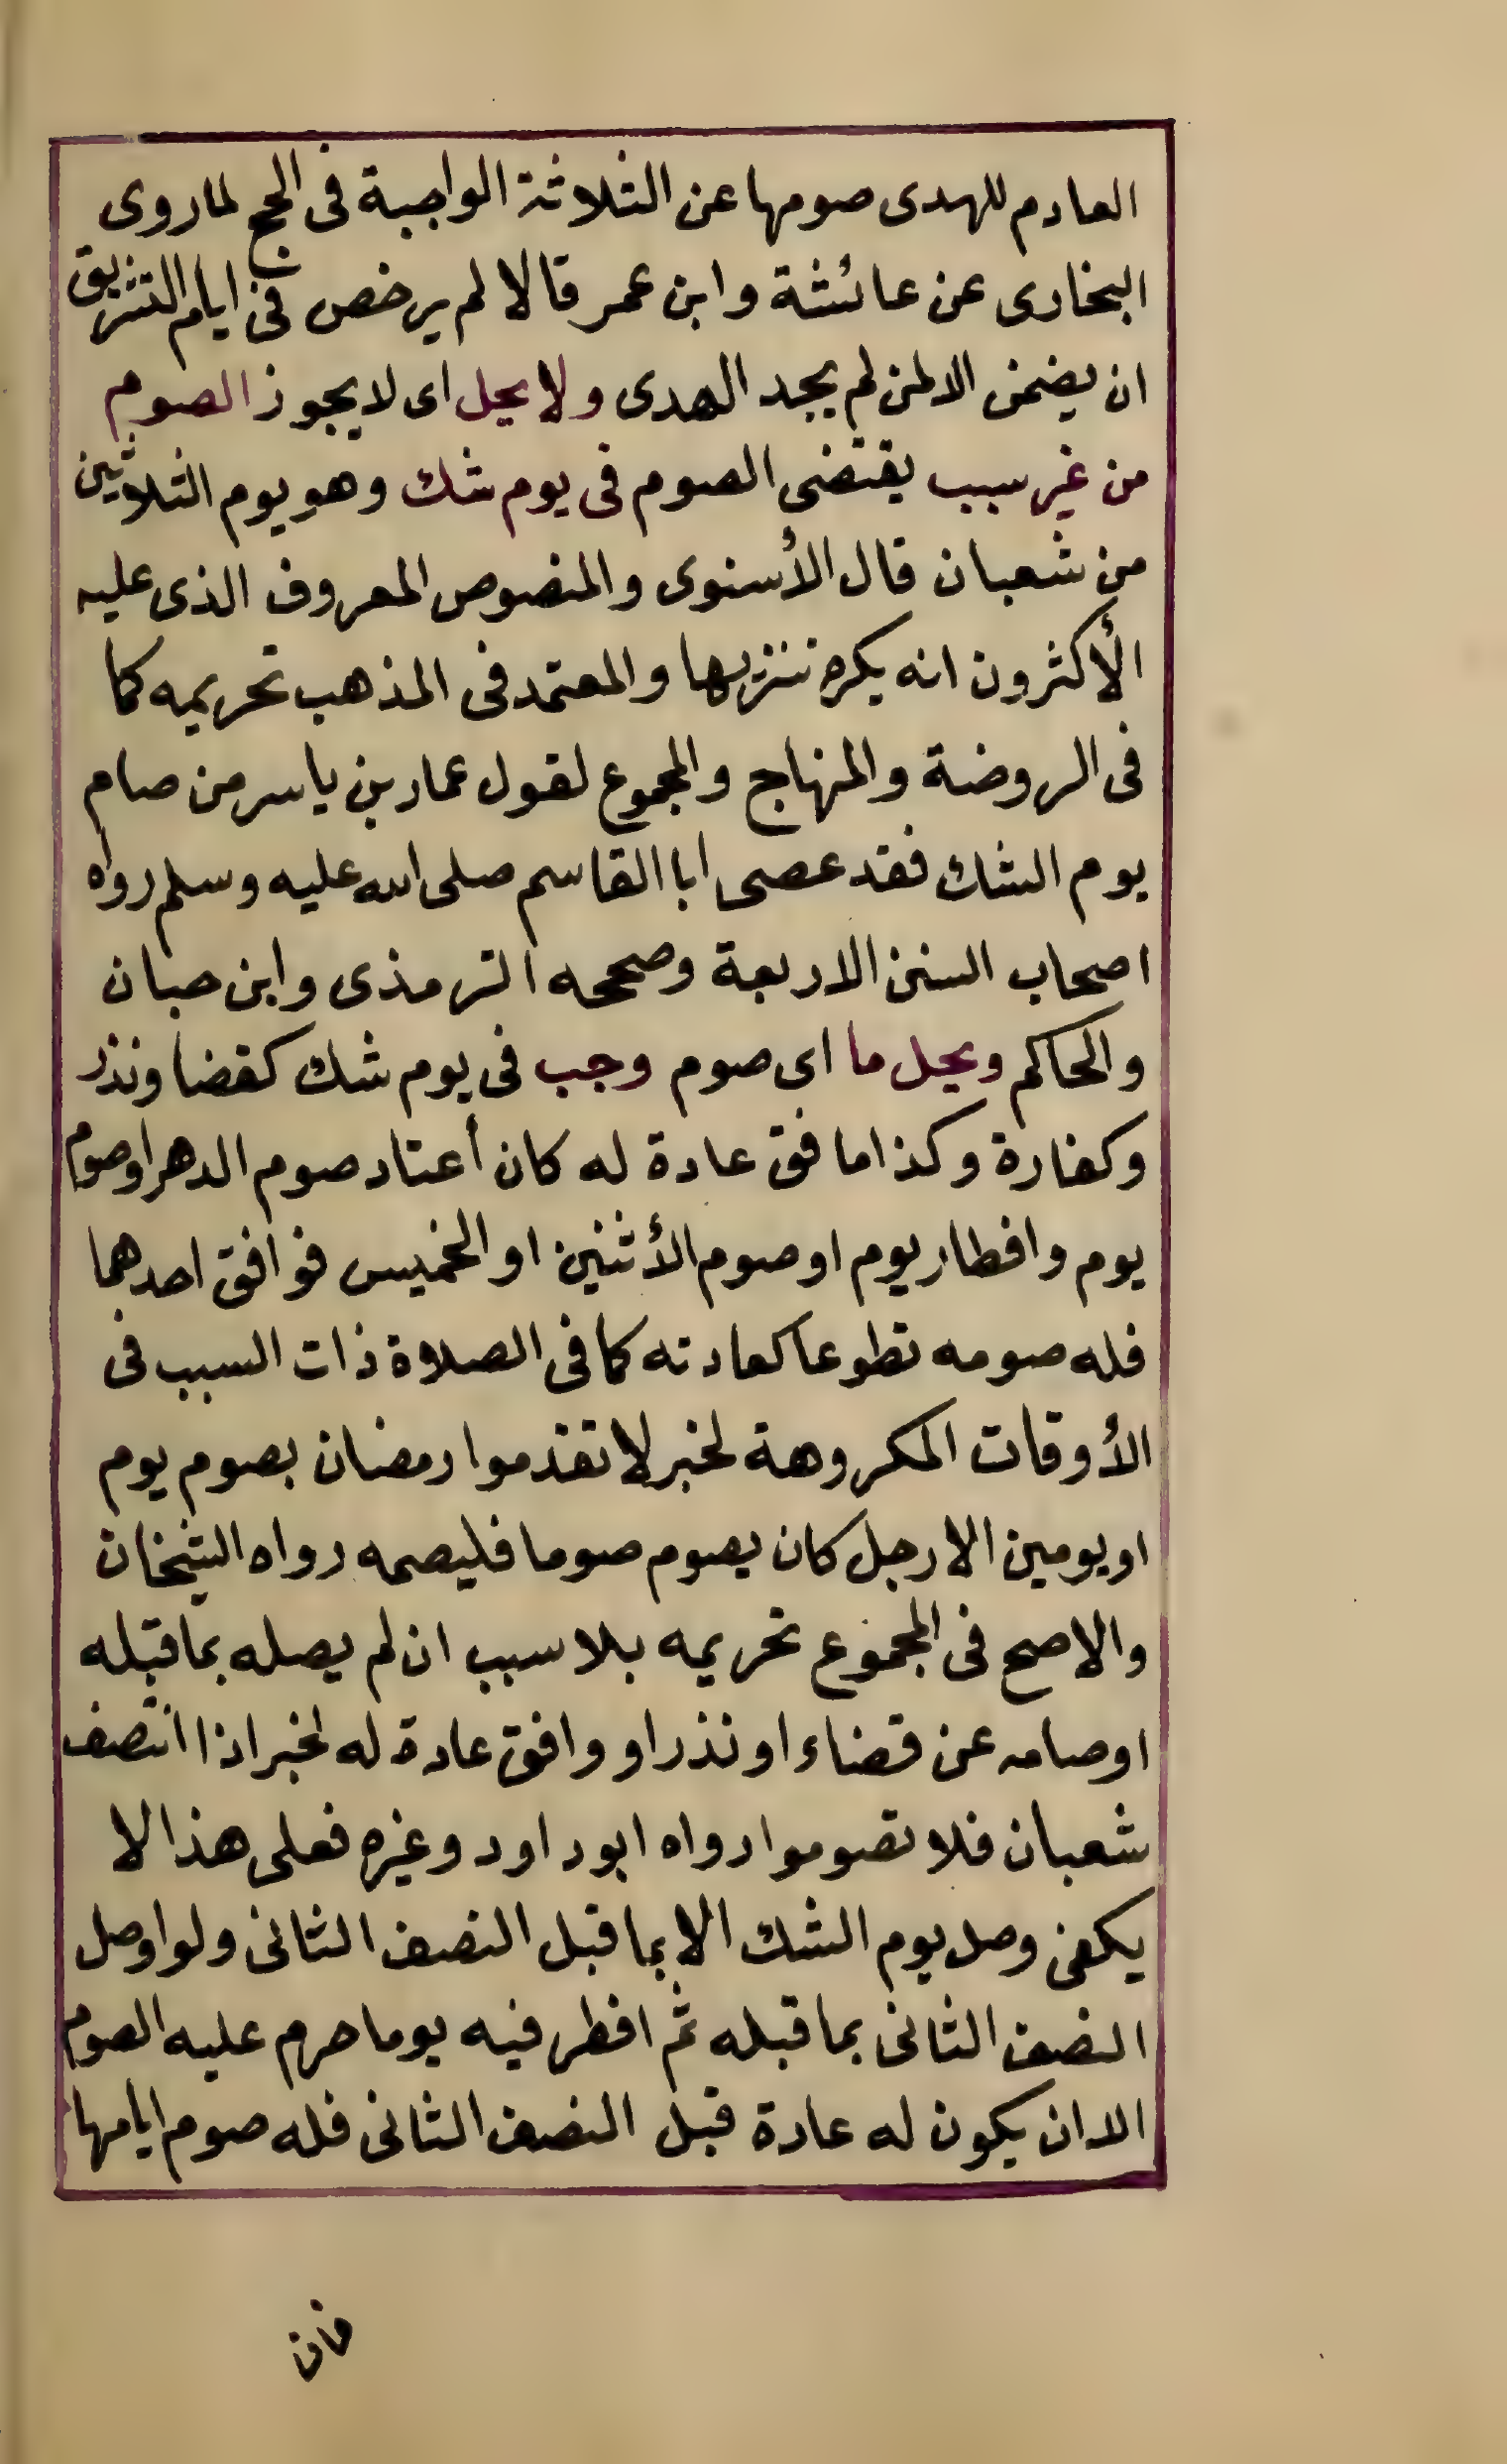 العادم للهدى صومها عن الثلاثة الواجبة فى الحج لماروى
البخارى عن عائشة وابن عمر قالا لم يرخص فى ايام التشريق
ان يضمن الا لمن لم يجد الهدى ولا يحل اى لا يجوز الصوم
من غير سبب يقتضى الصوم فى يوم شك وهو يوم الثلاثين
من شعبان قال الأسنوى والمنصوص المعروف الذى عليه
الأكثرون انه يكره تنزيها والمعتمد فى المذهب تحريمه كما
فى الروضة والمنهاج والمجموع لقول عمار بن ياسر من صام
يوم الشك فقد عصى ابا القاسم صلى الله عليه وسلم رواه
اصحاب السنن الاربعة وصححه الترمذى وابن حبان
والحاكم ويحل ما اى صوم وجب فى يوم شك كقضا ونذر
وكفارة وكذا ما فق عادة له كان أعتاد صوم الدهر او صوم
يوم وافطار يوم او صوم الأثنين او الخميس فوافق احدهما
فله صومه تطوعا كعادته كما فى الصلاة ذات السبب فى
الأوقات المكروهة لخبر لا تقدموا رمضان بصوم يوم
او يومين الا رجل كان يصوم صوما فليصمه رواه الشيخان
والاصح فى المجموع تحريمه بلا سبب ان لم يصله بما قبله
او صامه عن قضاء او نذر او وافق عادة له لخبر اذا انتصف
شعبان فلا تصوموا رواه ابو داود وغيره فعلى هذا لا
يكفى وصل يوم الشك الا بما قبل النصف الثانى ولو اوصل
النصف الثانى بما قبله ثم افطر فيه يوما حرم عليه الصوم
الا ان يكون له عادة قبل النصف الثانى فله صوم ايامها
فان